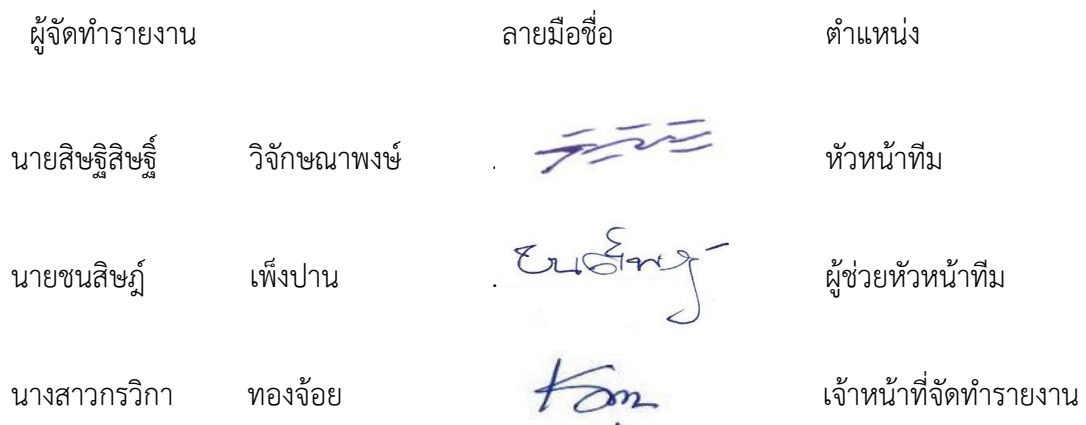 ผู้จัดทำรายงาน ลายมือชื่อ ตำแหน่ง
นายสิษฐิสิษฐิ์ วิจักษณาพงษ์ . หัวหน้าทีม
นายชนสิษฎ์ เพ็งปาน . ผู้ช่วยหัวหน้าทีม
นางสาวกรวิกา ทองจ้อย เจ้าหน้าที่จัดทำรายงาน